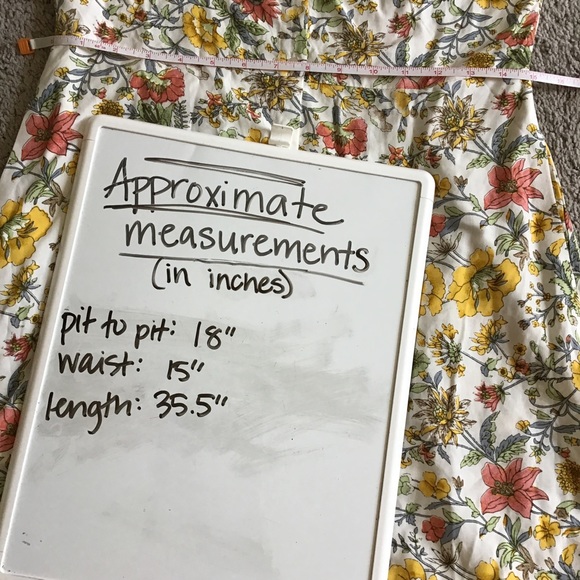 Approximate
measurements
(in inches)
pit to pit: 18"
waist: 15"
length: 35.5"